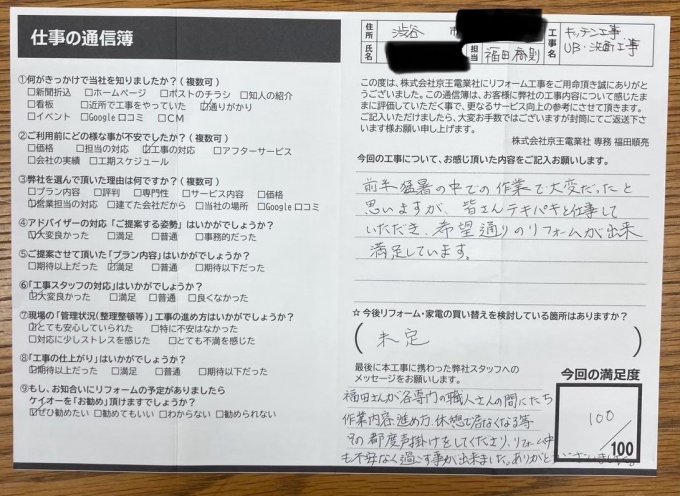 仕事の通信簿
①何がきっかけで当社を知りましたか？(複数可)
□新聞折込 □ホームページ □ポストのチラシ □知人の紹介
□看板 □近所で工事をやっていた ☑通りがかり
□イベント □Google口コミ □CM
②ご利用前にどの様な事が不安でしたか？(複数可)
□価格 □担当の対応 ☑工事の対応 □アフターサービス
□会社の実績 □工期スケジュール
③弊社を選んで頂いた理由は何ですか？(複数可)
□プラン内容 □評判 □専門性 □サービス内容 □価格
☑営業担当の対応 □建てた会社だから □当社の場所 □Google口コミ
④アドバイザーの対応「ご提案する姿勢」はいかがでしょうか？
☑大変良かった □満足 □普通 □事務的だった
⑤ご提案させて頂いた「プラン内容」はいかがでしょうか？
□期待以上だった ☑満足 □普通 □期待以下だった
⑥「工事スタッフの対応」はいかがでしょうか？
☑大変良かった □満足 □普通 □良くなかった
⑦現場の「管理状況(整理整頓等)」工事の進め方はいかがでしょうか？
☑とても安心していられた □特に不安はなかった
□対応に少しストレスを感じた □とても不満を感じた
⑧「工事の仕上がり」はいかがでしょうか？
☑期待以上だった □満足 □普通 □期待以下だった
⑨もし、お知合いにリフォームの予定がありましたら
ケイオーを「お勧め」頂けますでしょうか？
☑ぜひ勧めたい □勧めてもいい □わからない □勧められない
住所 渋谷 市
氏名
担当 福田
工事名 キッチン工事
UB・洗面工事
この度は、株式会社京王電業社にリフォーム工事をご用命頂き誠にありがと
うございました。この通信簿は、お客様に弊社の工事内容について感じたま
まに評価していただく事で、更なるサービス向上の参考にさせて頂きます。
ご記入いただけましたら、大変お手数ではございますが封筒にてご返送下さ
います様お願い申し上げます。
株式会社京王電業社 専務 福田順亮
今回の工事について、お感じ頂いた内容をご記入お願いします。
前半猛暑の中での作業で大変だったと
思いますが、皆さんテキパキと仕事して
いただき、希望通りのリフォームが出来
満足しています。
☆今後リフォーム・家電の買い替えを検討している箇所はありますか？
(未定)
最後に本工事に携わった弊社スタッフへの
メッセージをお願いします。
福田さんが各専門の職人さんの間にたち
作業内容、進め方、休憩で居なくなる等
その都度声掛けをしてくださり、リフォーム中
も不安なく過ごす事が出来ました。ありがとうございました。
今回の満足度
100
/100